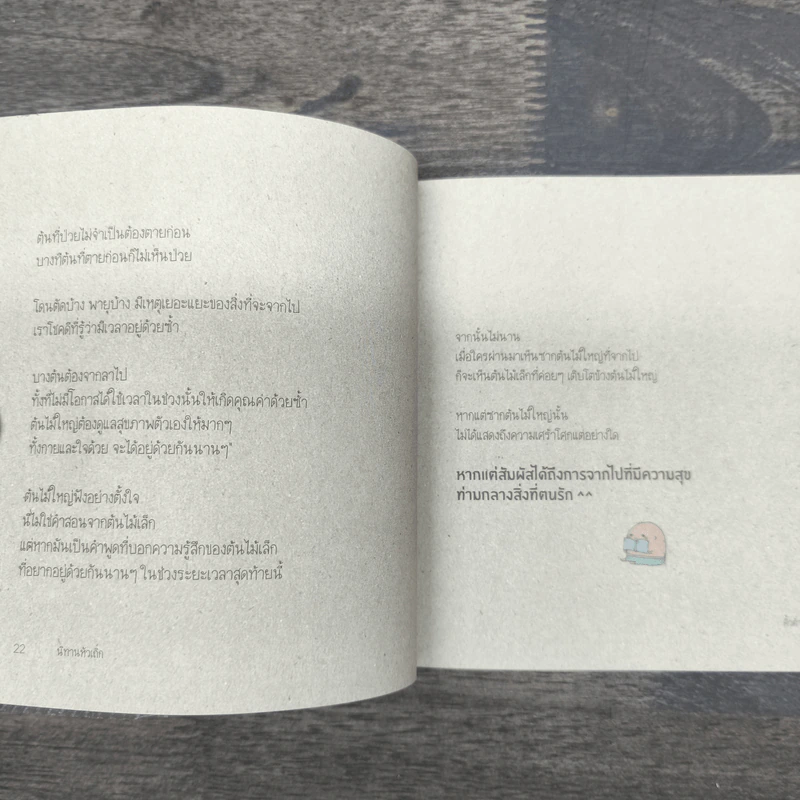 ต้นที่ป่วยไม่จำเป็นต้องตายก่อน
บางทีต้นที่ตายก่อนก็ไม่เห็นป่วย
โดนตัดบ้าง พายุบ้าง มีเหตุเยอะแยะของสิ่งที่จะจากไป
เราโชคดีที่รู้ว่ามีเวลาอยู่ด้วยซ้ำ
บางต้นต้องจากลาไป
ทั้งที่ไม่มีโอกาสได้ใช้เวลาในช่วงนั้นให้เกิดคุณค่าด้วยซ้ำ
ต้นไม้ใหญ่ต้องดูแลสุขภาพตัวเองให้มากๆ
ทั้งกายและใจด้วย จะได้อยู่ด้วยกันนานๆ"
ต้นไม้ใหญ่ฟังอย่างตั้งใจ
นี่ไม่ใช่คำสอนจากต้นไม้เล็ก
แต่หากมันเป็นคำพูดที่บอกความรู้สึกของต้นไม้เล็ก
ที่อยากอยู่ด้วยกันนานๆ ในช่วงระยะเวลาสุดท้ายนี้
22 นิทานหัวเถิก
จากนั้นไม่นาน
เมื่อใครผ่านมาเห็นซากต้นไม้ใหญ่ที่จากไป
ก็จะเห็นต้นไม้เล็กที่ค่อยๆ เติบโตข้างต้นไม้ใหญ่
หากแต่ซากต้นไม้ใหญ่นั้น
ไม่ได้แสดงถึงความเศร้าโศกแต่อย่างใด
หากแต่สัมผัสได้ถึงการจากไปที่มีความสุข
ท่ามกลางสิ่งที่ตนรัก ^^